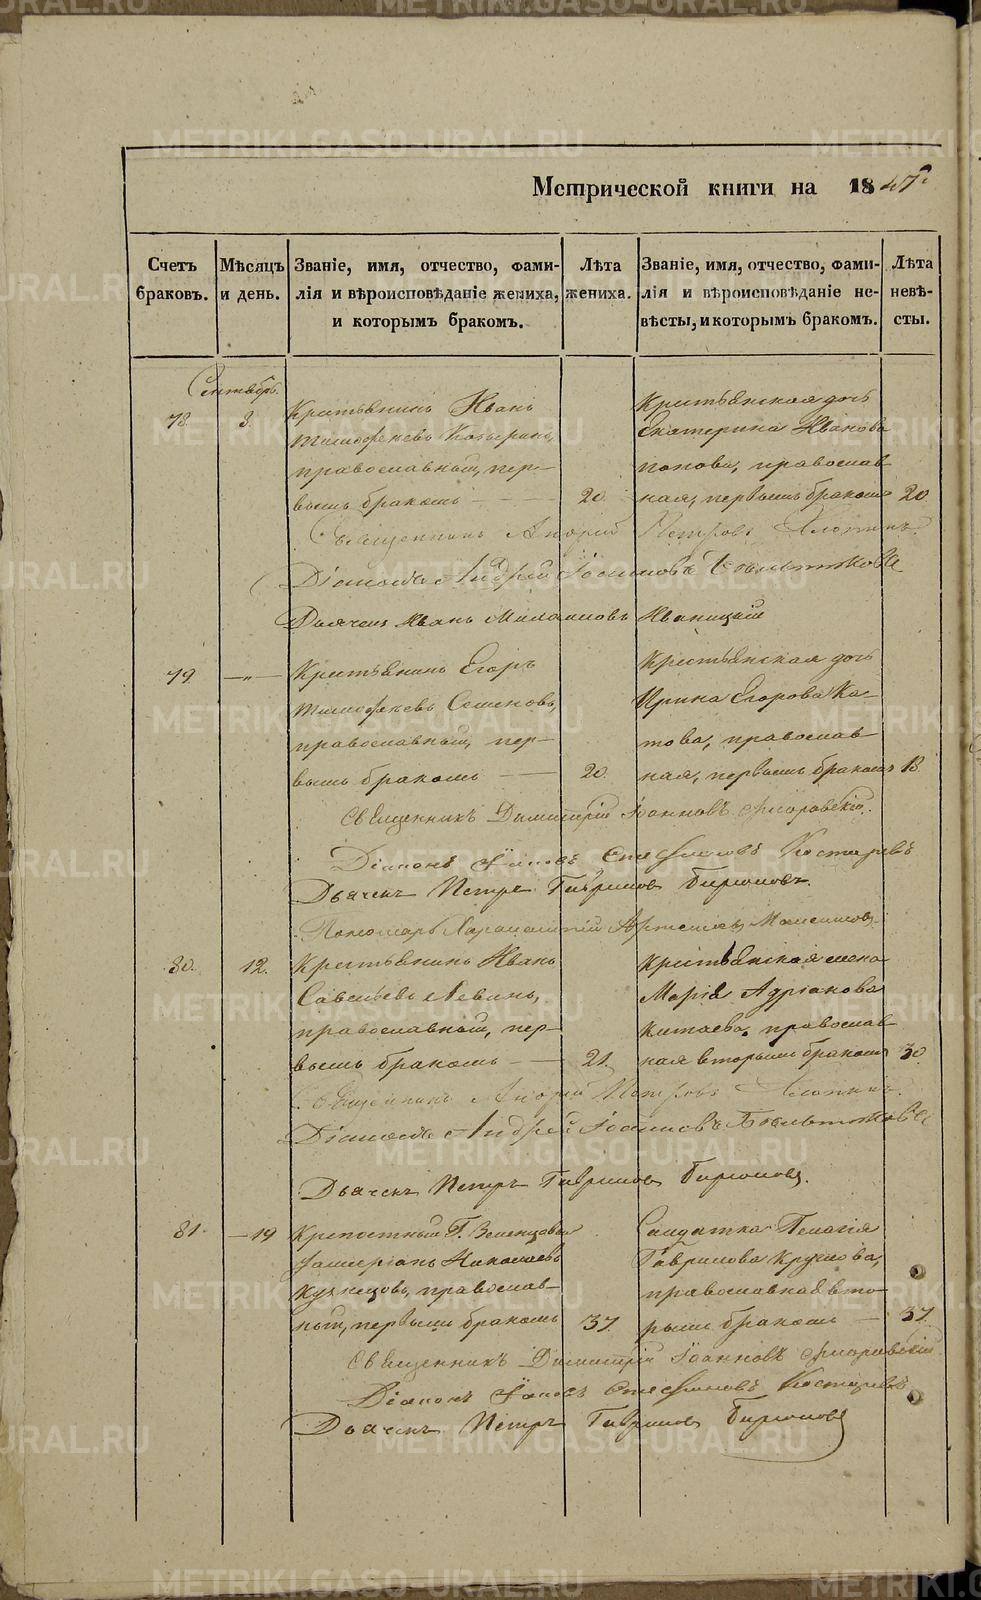 Метрической книги на 1847 г.
Счетъ браковъ.
Мѣсяцъ и день.
Званіе, имя, отчество, фами-
лія и вѣроисповѣданіе жениха,
и которымъ бракомъ.
Лѣта жениха.
Званіе, имя, отчество, фами-
лія и вѣроисповѣданіе не-
вѣсты, и которымъ бракомъ.
Лѣта невѣ-
сты.
Сентябрь.
78. 3. Крестьянинъ Иванъ
Тимофеевъ
православный, пер-
вымъ бракомъ 20.
Крестьянская дочь
Екатерина Иванова
Попова, православ
ная, первымъ бракомъ 20
Священникъ Андрей Петровъ
Діаконъ Андрей Іоанновъ
Дьячекъ Иванъ Иваницкій
79. —"— Крестьянинъ Егоръ
Тимофеевъ Семеновъ,
православный, пер-
вымъ бракомъ 20.
Крестьянская дочь
Ирина Егорова Ка-
това, православ
ная, первымъ бракомъ 18.
Священникъ Димитрій Іоанновъ Флоровскій.
Діаконъ Іаковъ Стефановъ Костаревъ
Дьячекъ Петръ Гавриловъ Бирюковъ.
Пономарь Харалампій Артемьевъ Максимовъ
80. 12. Крестьянинъ Иванъ
Савельевъ Левинъ,
православный, пер-
вымъ бракомъ 21.
Крестьянская жена
Марія Адріанова
Китаева, православ
ная вторымъ бракомъ 30
Священникъ Андрей Петровъ
Діаконъ Андрей Іоанновъ
Дьячекъ Петръ Гавриловъ Бирюковъ.
81. —19 Крепостный Г.
Николаевъ
Кузнецовъ, православ-
ный, первымъ бракомъ 37.
Солдатка Пелагія
Гаврилова Круглова,
православная вто-
рымъ бракомъ — 37.
Священникъ Димитрій Іоанновъ Флоровскій
Діаконъ Іаковъ Стефановъ Костаревъ
Дьячекъ Петръ Гавриловъ Бирюковъ
METRIKI.GASO-URAL.RU